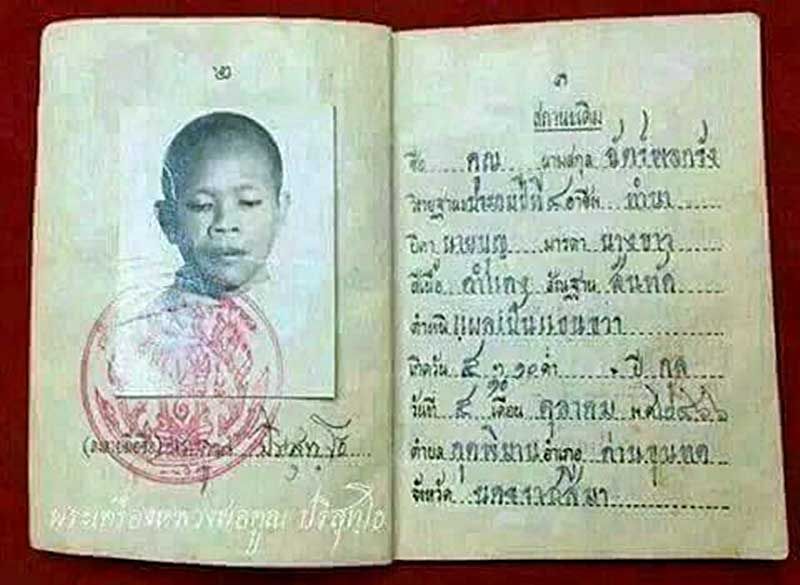 ๒
๓
สถานเดิม
ชื่อ คูณ นามสกุล ฉัตร์พลกรัง
วิทยฐานะ อาชีพ ทำนา
บิดา นายบุญ มารดา นางขาว
สีเนื้อ ดำแดง สัณฐาน สันทัด
ตำหนิ แผลเป็นแขนขวา
เกิดวัน ๕ ค่ำ ปี กุล
วันที่ ๔ เดือน ตุลาคม พ.ศ. ๒๔๖๖
ตำบล กุดพิมาน อำเภอ ด่านขุนทด
จังหวัด นครราชสีมา
ปริสุทฺโธ
พระเครื่องหลวงพ่อคูณ ปริสุทโธ